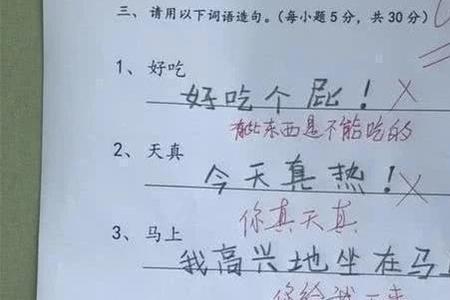 三、请用以下词语造句。(每小题5分，共30分)
1、好吃
好吃个屁！
有些东西是不能吃的
2、天真
今天真热！
你真天真
3、马上
我高兴地坐在马上
你给我